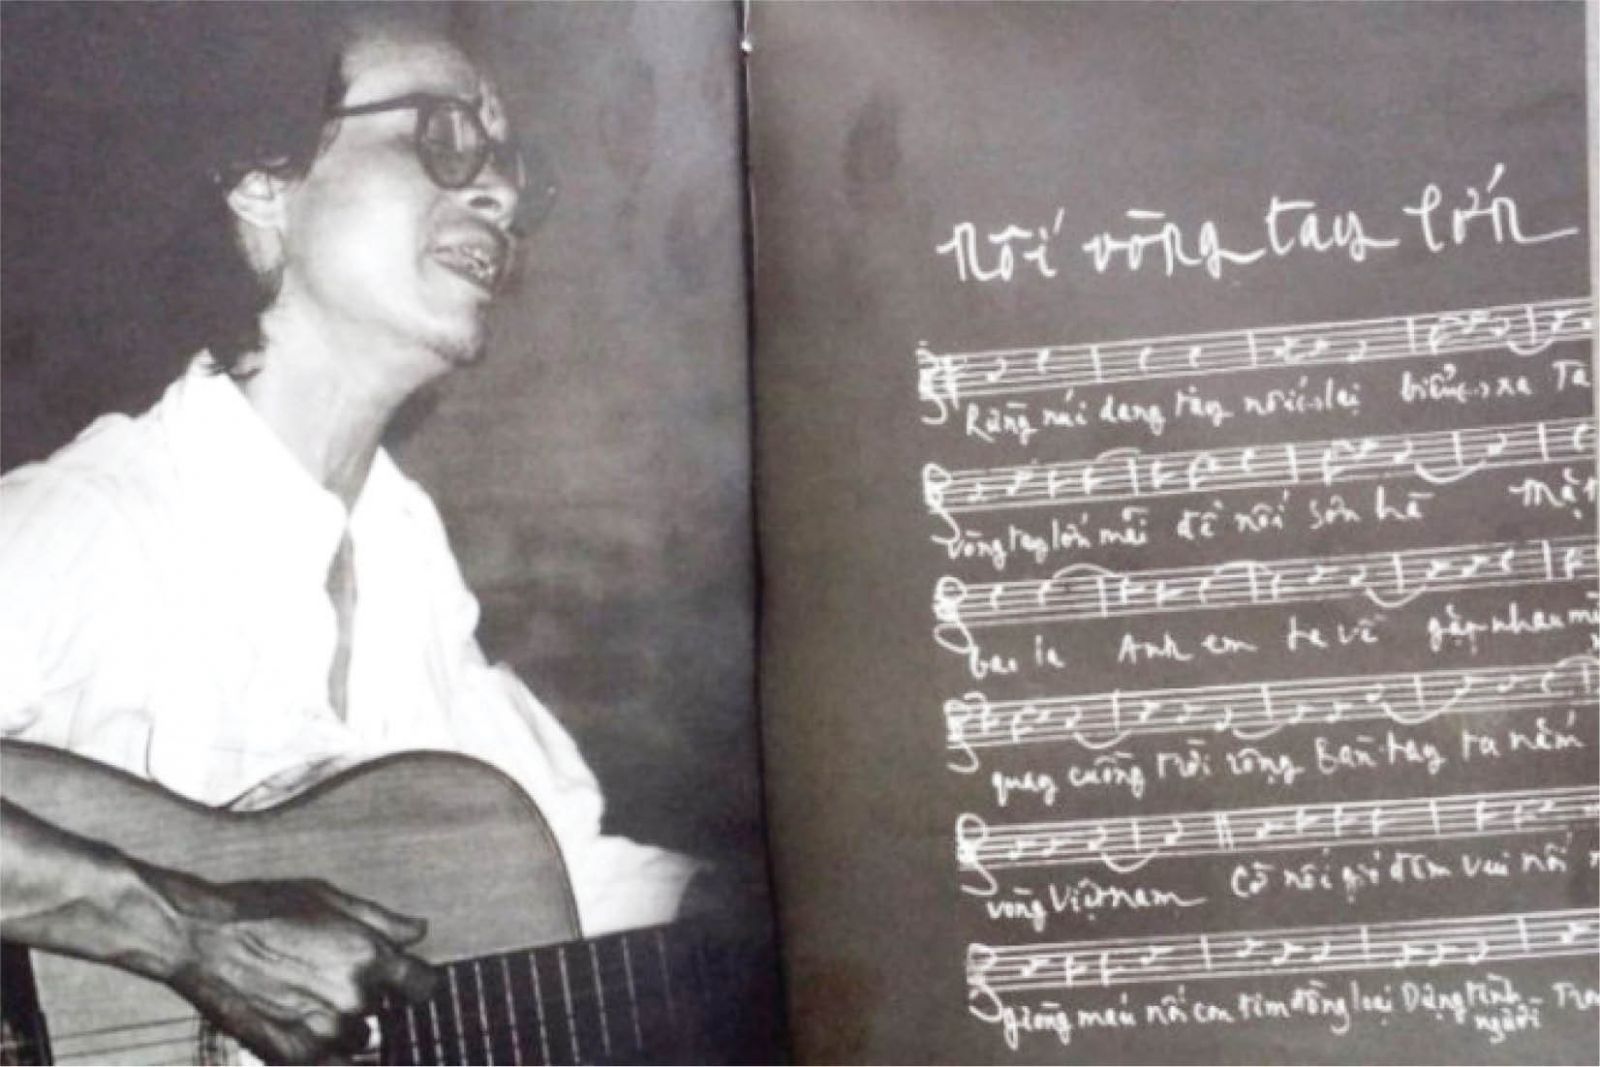 Nối vòng tay lớn
Rừng núi dang tay nối lại biển xa Ta
vòng tay lớn mãi để nối sơn hà Mặt
bao la Anh em ta về gặp nhau
quay cuồng trời rộng Bàn tay ta nắm
vòng Việt nam Cờ nối gió đêm vui nối
giòng máu nối con tim đồng loại Dựng tình người